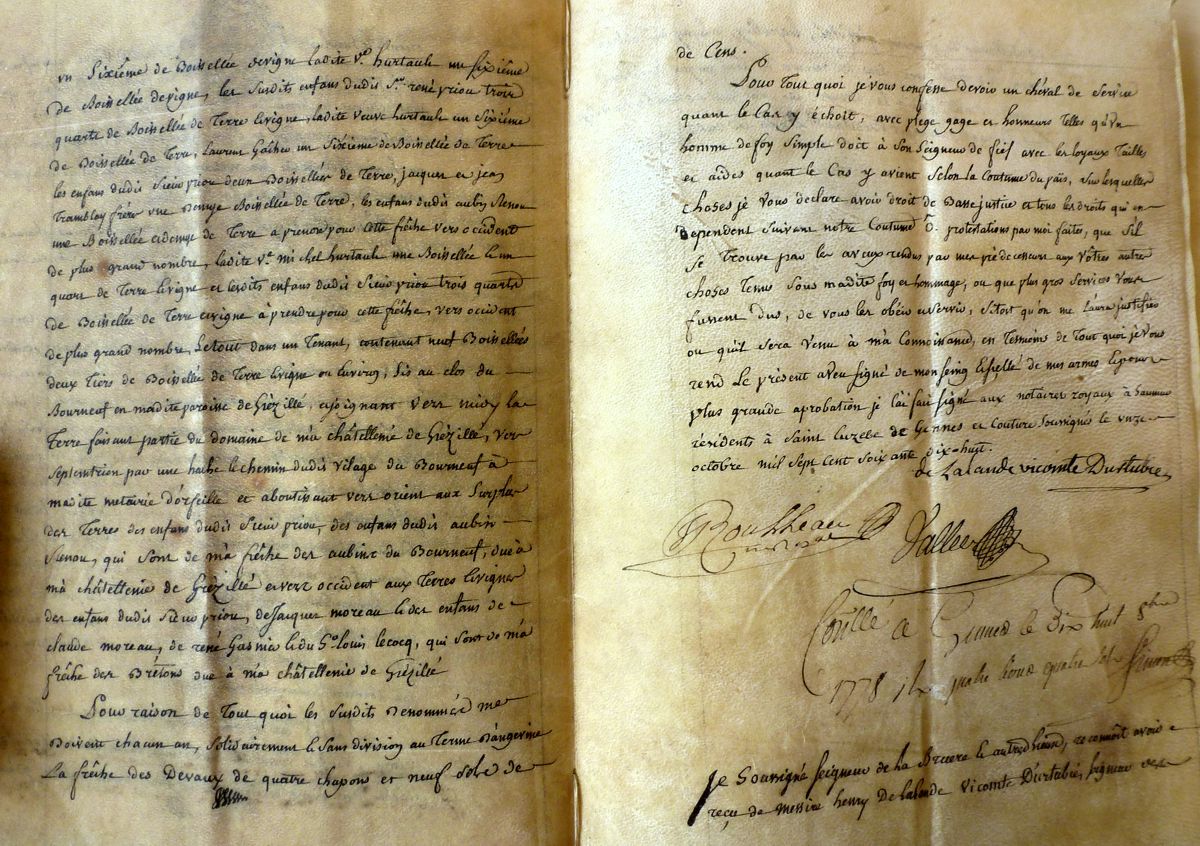 un Sixiême de Boissellée de vigne ladite v.e hurtault un sixiême
de Boissellée de vigne, les susdits enfans dudit S.r rené priou trois
quarts de Boissellée de Terre & vigne, ladite veuve hurtault un Sixiéme
de Boissellée de Terre, Laurent un Sixiéme de Boissellée de Terre
les enfans dudit Sieur priou deux Boissellées de Terre, jacques et jean
Tramblay fréres une Demye Boissellée de Terre, les enfans dudit aubin Senou
une Boissellée et demye de Terre a prendre pour cette frêche vers occident
de plus grand nombre, ladite v.e michel hurtault une Boissellée & un
quart de Terre & vigne et lesdits enfans dudit Sieur priou trois quarts
de Boissellée de Terre & vigne à prendre pour cette frêche, vers occident
de plus grand nombre, Le tout dans un Tenant, contenant neuf Boissellées
deux Tiers de Boissellée de Terre & vigne ou environ, Sis au clos du
Bourneuf en madite paroisse de Grézillé, joignant vers midy la
Terre faisant partie du domaine de ma châtellenie de Grézillé, vers
septemtrion par une hache le chemin dudit vilage du Bourneuf à
madite métairie d'orfeille et aboutissant vers orient aux Surplus
des Terres des enfans dudit Sieur priou, des enfans dudit aubin
Senou, qui sont de ma frêche des aubins du Bourneuf, due à
ma châtellenie de Grézillé et vers occident aux Terres & vignes
des enfans dudit Sieur priou, de Jacques moreau & des enfans de
claude moreau, de rené Gasnier & du S.r louis lecocq, qui sont de ma
frêche des Brétons due à ma châtellenie de Grézillé
Pour raison de Tout quoi les Susdits Denommés me
Doivent chacun an, Solidairement & sans division au Terme D'angevine
La frêche des Devaux de quatre chapons et neuf Sols de
de Cens.
Pour Tout quoi je vous confesse devoir un cheval de Service
quant le Cas y échoit, avec plege gage et honneurs Telles qu'un
homme de foy Simple doit à Son Seigneur de fief avec les loyaux Tailles
et aides quant le Cas y avient Selon la Coutume du païs, Sur lesquelles
choses je vous déclare avoir droit de Basse justice et tous les droits qui en
Dependent Suivant notre Coutume D. protestations par moi faites, que S'il
se Trouve par les aveux rendus par mes prédecesseurs aux vôtres autres
choses Tenus Sous madite foy et hommage, ou que plus gros Services vous
fussent dus, de vous les obéir & Servir, sitost qu'on me L'aura justifiés
ou qu'il sera venu à ma Connoissance, en Temoins de Tout quoi je vous
rend Le présent aveu signé de mon seing & scellé de mes armes & pour
plus grande aprobation je l'ai fait signé aux notaires royaux à Saumur
résidents à Saint Euzebe de Gennes et Couture Soussignés le unze
octobre mil Sept Cent Soixante dix-huit.
de Lalande vicomte Dustubie
Rousseau
Vallee
Conllé a Gennes le Dix huit 8bre
1778 quatre livres quatre sols
Je Soussigné Seigneur de la Bruere & autres lieux, reconnoit avoir
reçu de messire henry De lalande vicomte D'urtubie, seigneur de